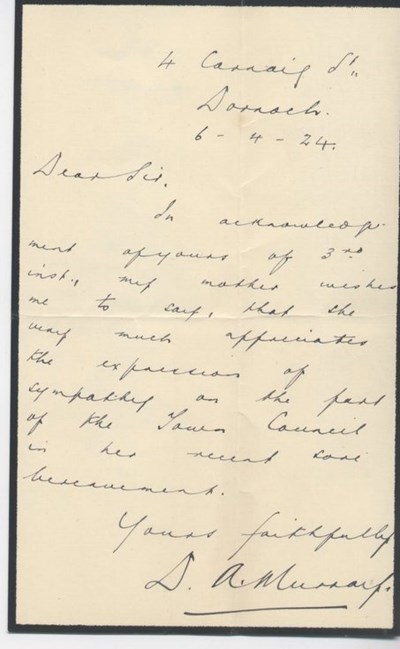 4 Carnaig St.,
Dornoch.
6 - 4 - 24.
Dear Sir,
In acknowledg-
ment of yours of 3rd
inst., my mother wishes
me to say, that she
very much appreciates
the expression of
sympathy on the part
of the Town Council
in her recent sore
bereavement.
Yours faithfully
D. A. Murray.